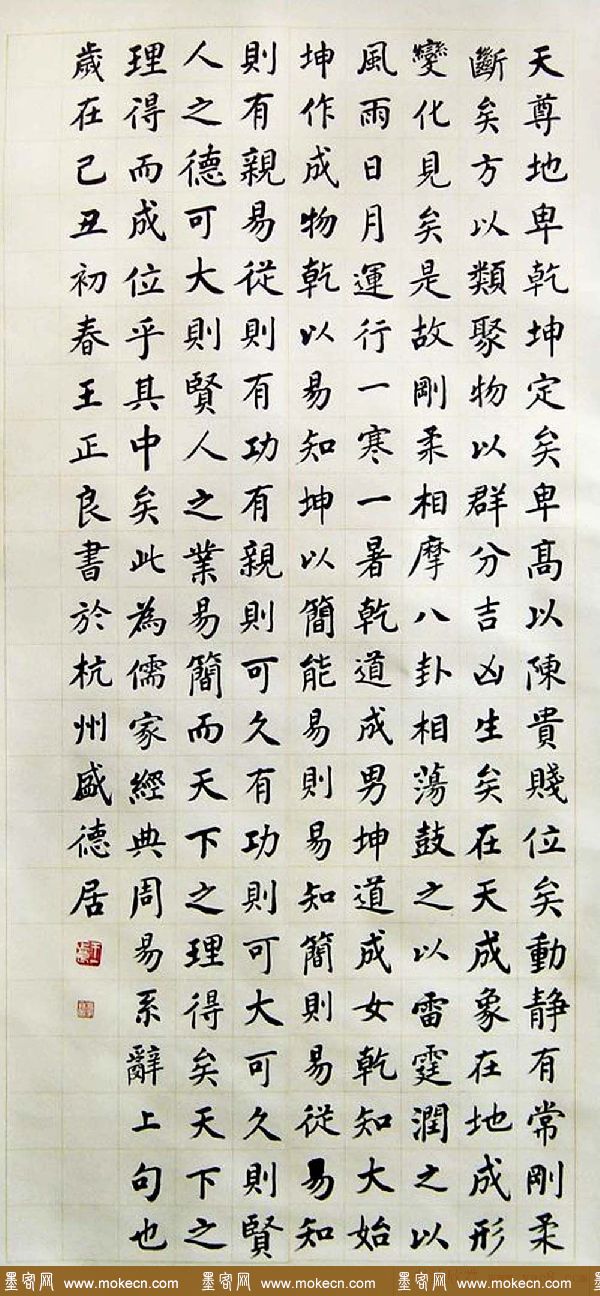 天尊地卑乾坤定矣卑髙以陳貴賤位矣動静有常剛柔
斷矣方以類聚物以群分吉凶生矣在天成象在地成形
變化見矣是故剛柔相摩八卦相蕩鼓之以雷霆潤之以
風雨日月運行一寒一暑乾道成男坤道成女乾知大始
坤作成物乾以易知坤以簡能易則易知簡則易從易知
則有親易從則有功有親則可久有功則可大可久則賢
人之德可大則賢人之業易簡而天下之理得矣天下之
理得而成位乎其中矣此為儒家經典周易系辭上句也
歲在己丑初春王正良書於杭州盛德居
墨客网 www.mokecn.com 墨客网 www.mokecn.com 墨客网 www.mokecn.com